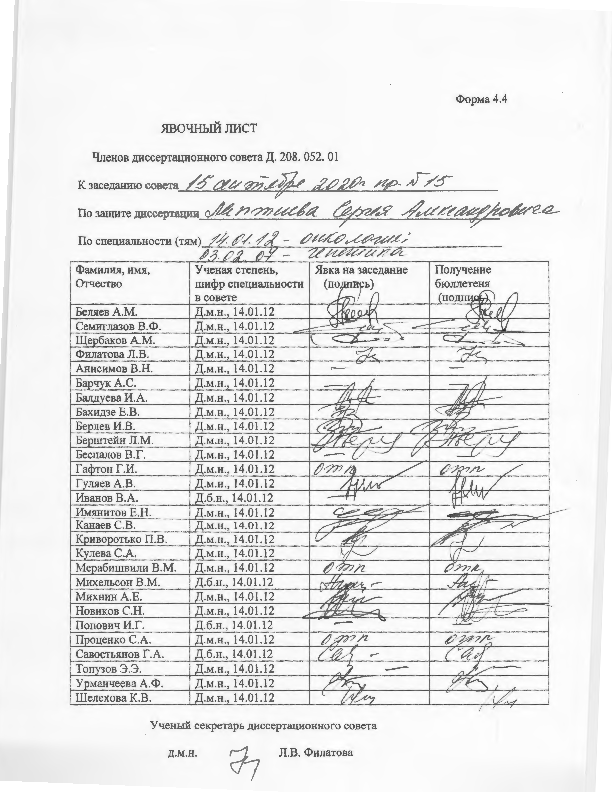 Форма 4.4
ЯВОЧНЫЙ ЛИСТ
Членов диссертационного совета Д. 208. 052. 01
К заседанию совета 15 сентября 2020г пр. №15
По защите диссертации Лаптиева Сергея Александровича
По специальности (тям) 14.01.12 - онкология;
03.02.07 -
Фамилия, имя, Отчество | Ученая степень, шифр специальности в совете | Явка на заседание (подпись) | Получение бюллетеня (подпись)
Беляев А.М. Д.м.н., 14.01.12
Семиглазов В.Ф. Д.м.н., 14.01.12
Щербаков А.М. Д.м.н., 14.01.12
Филатова Л.В. Д.м.н., 14.01.12
Анисимов В.Н. Д.м.н., 14.01.12 — —
Барчук А.С. Д.м.н., 14.01.12
Балдуева И.А. Д.м.н., 14.01.12
Бахидзе Е.В. Д.м.н., 14.01.12
Берлев И.В. Д.м.н., 14.01.12
Берштейн Л.М. Д.м.н., 14.01.12
Беспалов В.Г. Д.м.н., 14.01.12 — —
Гафтон Г.И. Д.м.н., 14.01.12 отп отп
Гуляев А.В. Д.м.н., 14.01.12
Иванов В.А. Д.б.н., 14.01.12
Имянитов Е.Н. Д.м.н., 14.01.12
Канаев С.В. Д.м.н., 14.01.12
Криворотько П.В. Д.м.н., 14.01.12
Кулева С.А. Д.м.н., 14.01.12
Мерабишвили В.М. Д.м.н., 14.01.12 отп отп
Михельсон В.М. Д.б.н., 14.01.12
Михнин А.Е. Д.м.н., 14.01.12
Новиков С.Н. Д.м.н., 14.01.12
Попович И.Г. Д.б.н., 14.01.12 — —
Проценко С.А. Д.м.н., 14.01.12 отп отп
Савостьянов Г.А. Д.б.н., 14.01.12
Топузов Э.Э. Д.м.н., 14.01.12 — —
Урманчеева А.Ф. Д.м.н., 14.01.12
Шелехова К.В. Д.м.н., 14.01.12
Ученый секретарь диссертационного совета
д.м.н. Л.В. Филатова